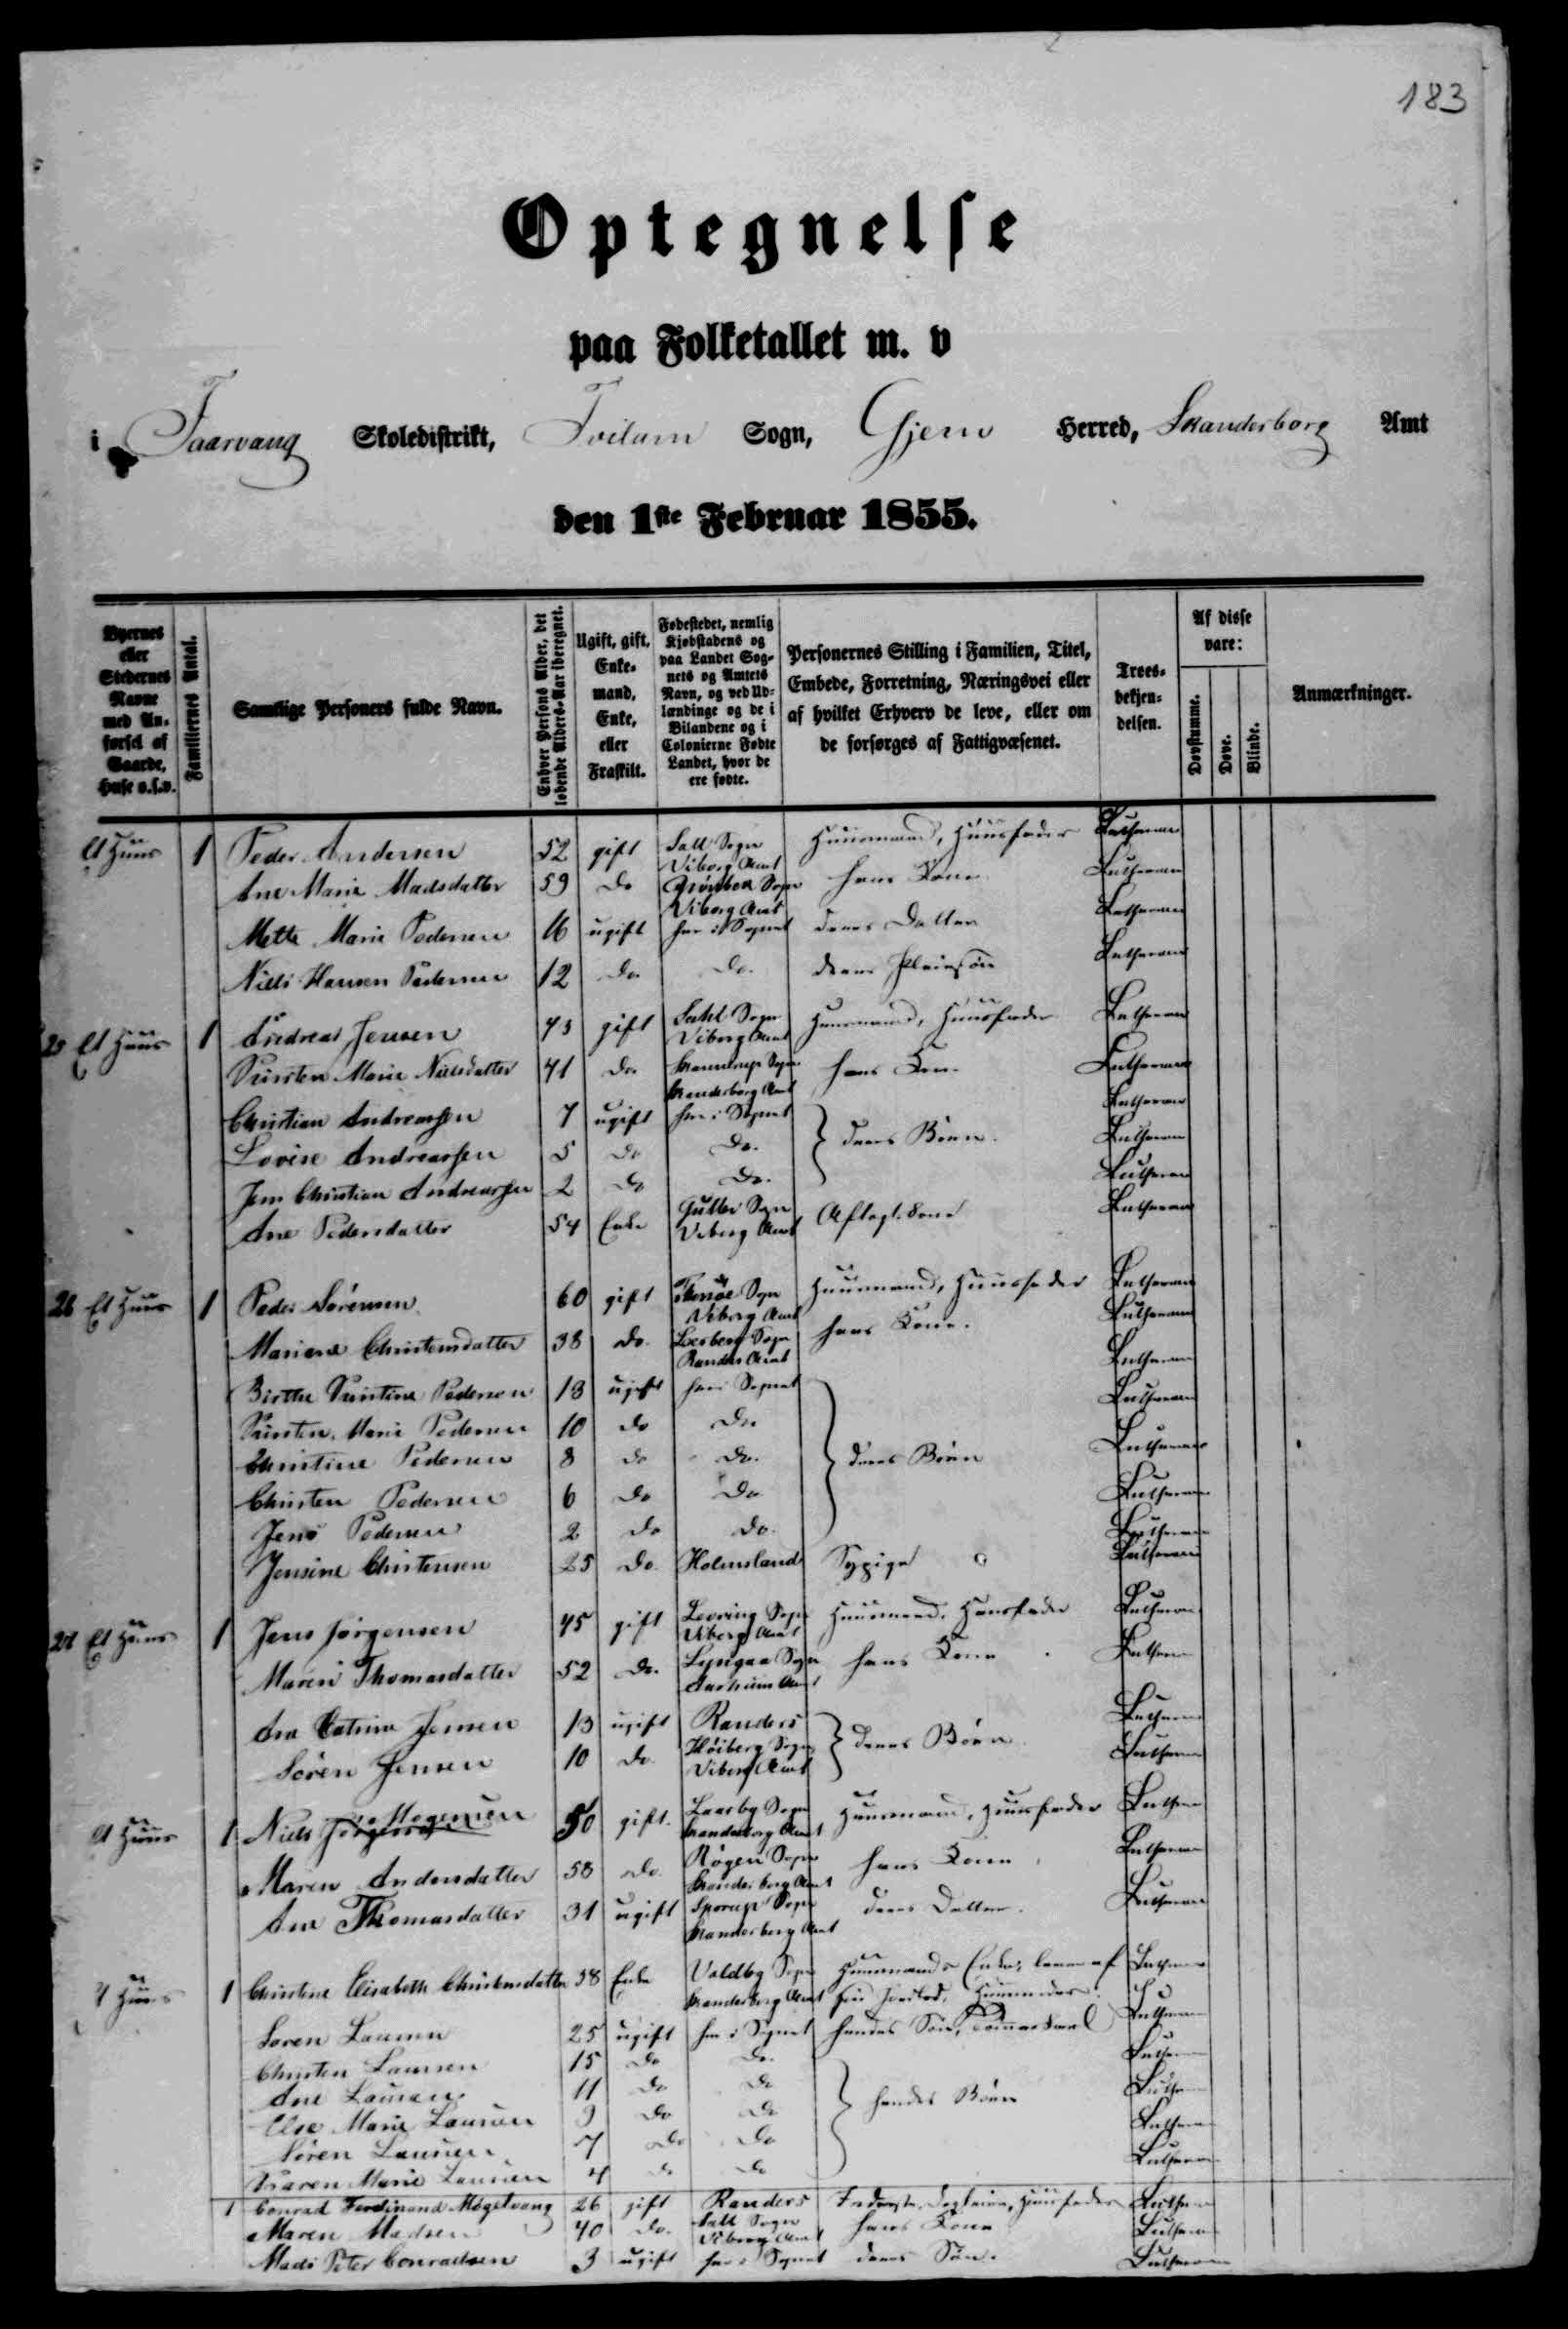 183
Optegnelse
paa Folketallet m. v
i Faarvang Skoledistrikt, Tvilum Sogn, Gjern Herred, Skanderborg Amt
den 1ste Februar 1855.
Byernes eller Stedernes Navne med Anførsel af Gaarde, Huse o.s.v.
Familiernes Antal.
Samtlige Personers fulde Navn.
Enhver Persons Alder, det løbende Alders-Aar iberegnet.
Ugift, gift, Enkemand, Enke, eller Fraskilt.
Fødestedet, nemlig Kjøbstadens og paa Landet Sognets og Amtets Navn, og ved Udlændinge og de i Bilandene og i Colonierne Fødte Landet, hvor de ere fødte.
Personernes Stilling i Familien, Titel, Embede, Forretning, Næringsvei eller af hvilket Erhverv de leve, eller om de forsørges af Fattigvæsenet.
Troesbekjendelsen.
Af disse vare:
Døvstumme.
Døve.
Blinde.
Anmærkninger.
Et Huus 1 Peder Andersen 52 gift Sall Sogn Viborg Amt Huusmand, Huusfader Lutheraner
Ane Marie Madsdatter 59 do Grønbek Sogn Viborg Amt hans Kone Lutheraner
Mette Marie Pedersen 16 ugift her i Sognet deres Datter Lutheraner
Niels Hansen Pedersen 12 do. do. deres Pleiesøn Lutheraner
25 Et Huus 1 Andreas Jensen 43 gift Sahl Sogn Viborg Amt Huusmand, Huusfader Lutheraner
Kirsten Marie Nielsdatter 41 do. Skanderborg Amt hans Kone Lutheraner
Christian Andreassen 7 ugift her i Sognet } deres Børn. Lutheraner
Lovise Andreassen 5 do do. Lutheraner
Jens Christian Andreassen 2 do do. Lutheraner
Ane Pedersdatter 54 Enke Gullev Sogn Viborg Amt Aftægtskone Lutheraner
26 Et Huus 1 Peder Sørensen 60 gift Viborg Amt Huusmand, Huusfader Lutheraner
Mariane Christensdatter 38 do. Sogn Randers Amt hans Kone. Lutheraner
Birthe Kirstine Pedersen 13 ugift her i Sognet Lutheraner
Kirsten Marie Pedersen 10 do do Lutheraner
Christine Pedersen 8 do do. } deres Børn Lutheraner
Christen Pedersen 6 do do Lutheraner
Jens Pedersen 2 do do. Lutheraner
Jensine Christensen 25 do. Holmsland Sypige Lutheraner
27 Et Huus 1 Jens Jørgensen 45 gift Levring Sogn Viborg Amt Huusmand, Huusfader Lutheraner
Maren Thomasdatter 52 do. Lyngaa Sogn Aarhuus Amt hans Kone Lutheraner
Ane Catrine Jensen 13 ugift Randers } deres Børn Lutheraner
Søren Jensen 10 do. Høiberg Sogn Viborg Amt Lutheraner
Et Huus 1 Niels Jørgensen Mogensen 50 gift. Laasby Sogn Skanderborg Amt Huusmand, Huusfader Lutheraner
Maren Andersdatter 58 do. Røgen Sogn Skanderborg Amt hans Kone Lutheraner
Ane Thomasdatter 31 ugift Sporup Sogn Skanderborg Amt deres Datter. Lutheraner
Et Huus 1 Christine Elisabeth Christensdatter 38 Enke Voldby Sogn Skanderborg Amt Huusmands Enke, lever af sin Jordlod, Huusmoder. Lutheraner
Søren Laursen 25 ugift her i Sognet hendes Søn, Lutheraner
Christen Laursen 15 do do. Lutheraner
Ane Laursen 11 do do } hendes Børn Lutheraner
Else Marie Laursen 9 do do Lutheraner
Søren Laursen 7 do do Lutheraner
Karen Marie Laursen 4 do do
1 Conrad Ferdinand Møgelvang 26 gift Randers Inderste, Dagleier, Huusfader Lutheraner
Maren Madsen 40 do. Sall Sogn Viborg Amt hans Kone Lutheraner
Mads Peter Conradsen 3 ugift her i Sognet deres Søn. Lutheraner